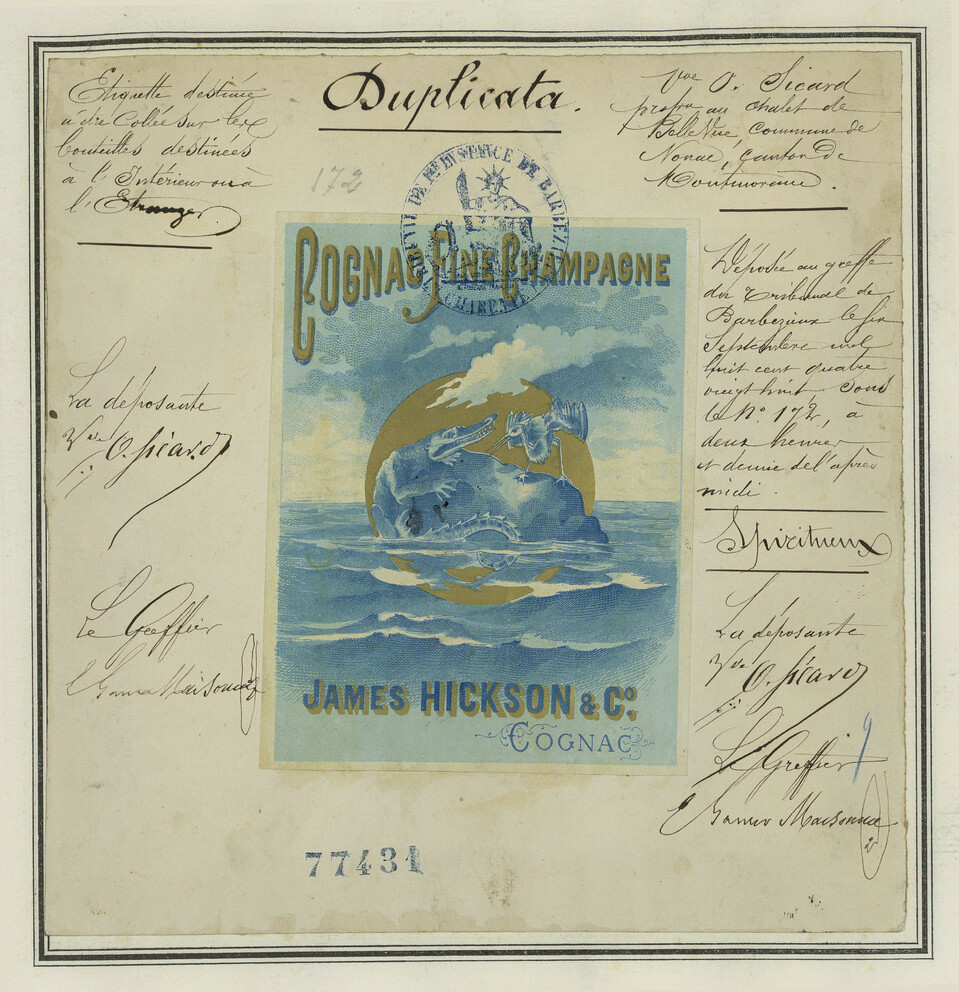 Duplicata.
Etiquette destinée
à être Collée sur les
bouteilles destinées
à l'Intérieur ou à
l'Etranger.
Vve O. Sicard
propre au chalet de
BelleVue, Commune de
Nonac, Canton de
Montmoreau.
172
GREFFE DU TRIBUNAL DE 1RE INSTANCE DE BARBEZIEUX
CHARENTE
COGNAC FINE CHAMPAGNE
JAMES HICKSON & Co.
COGNAC
Déposée au greffe
du Tribunal de
Barbezieux le six
Septembre mil
huit cent quatre
vingt huit, sous
le No. 172, à
deux heures
et demie de l'après
midi.
Spiritueux
La déposante
Vve O. Sicard
Le Greffier
La déposante
Vve O. Sicard
Le Greffier
77431